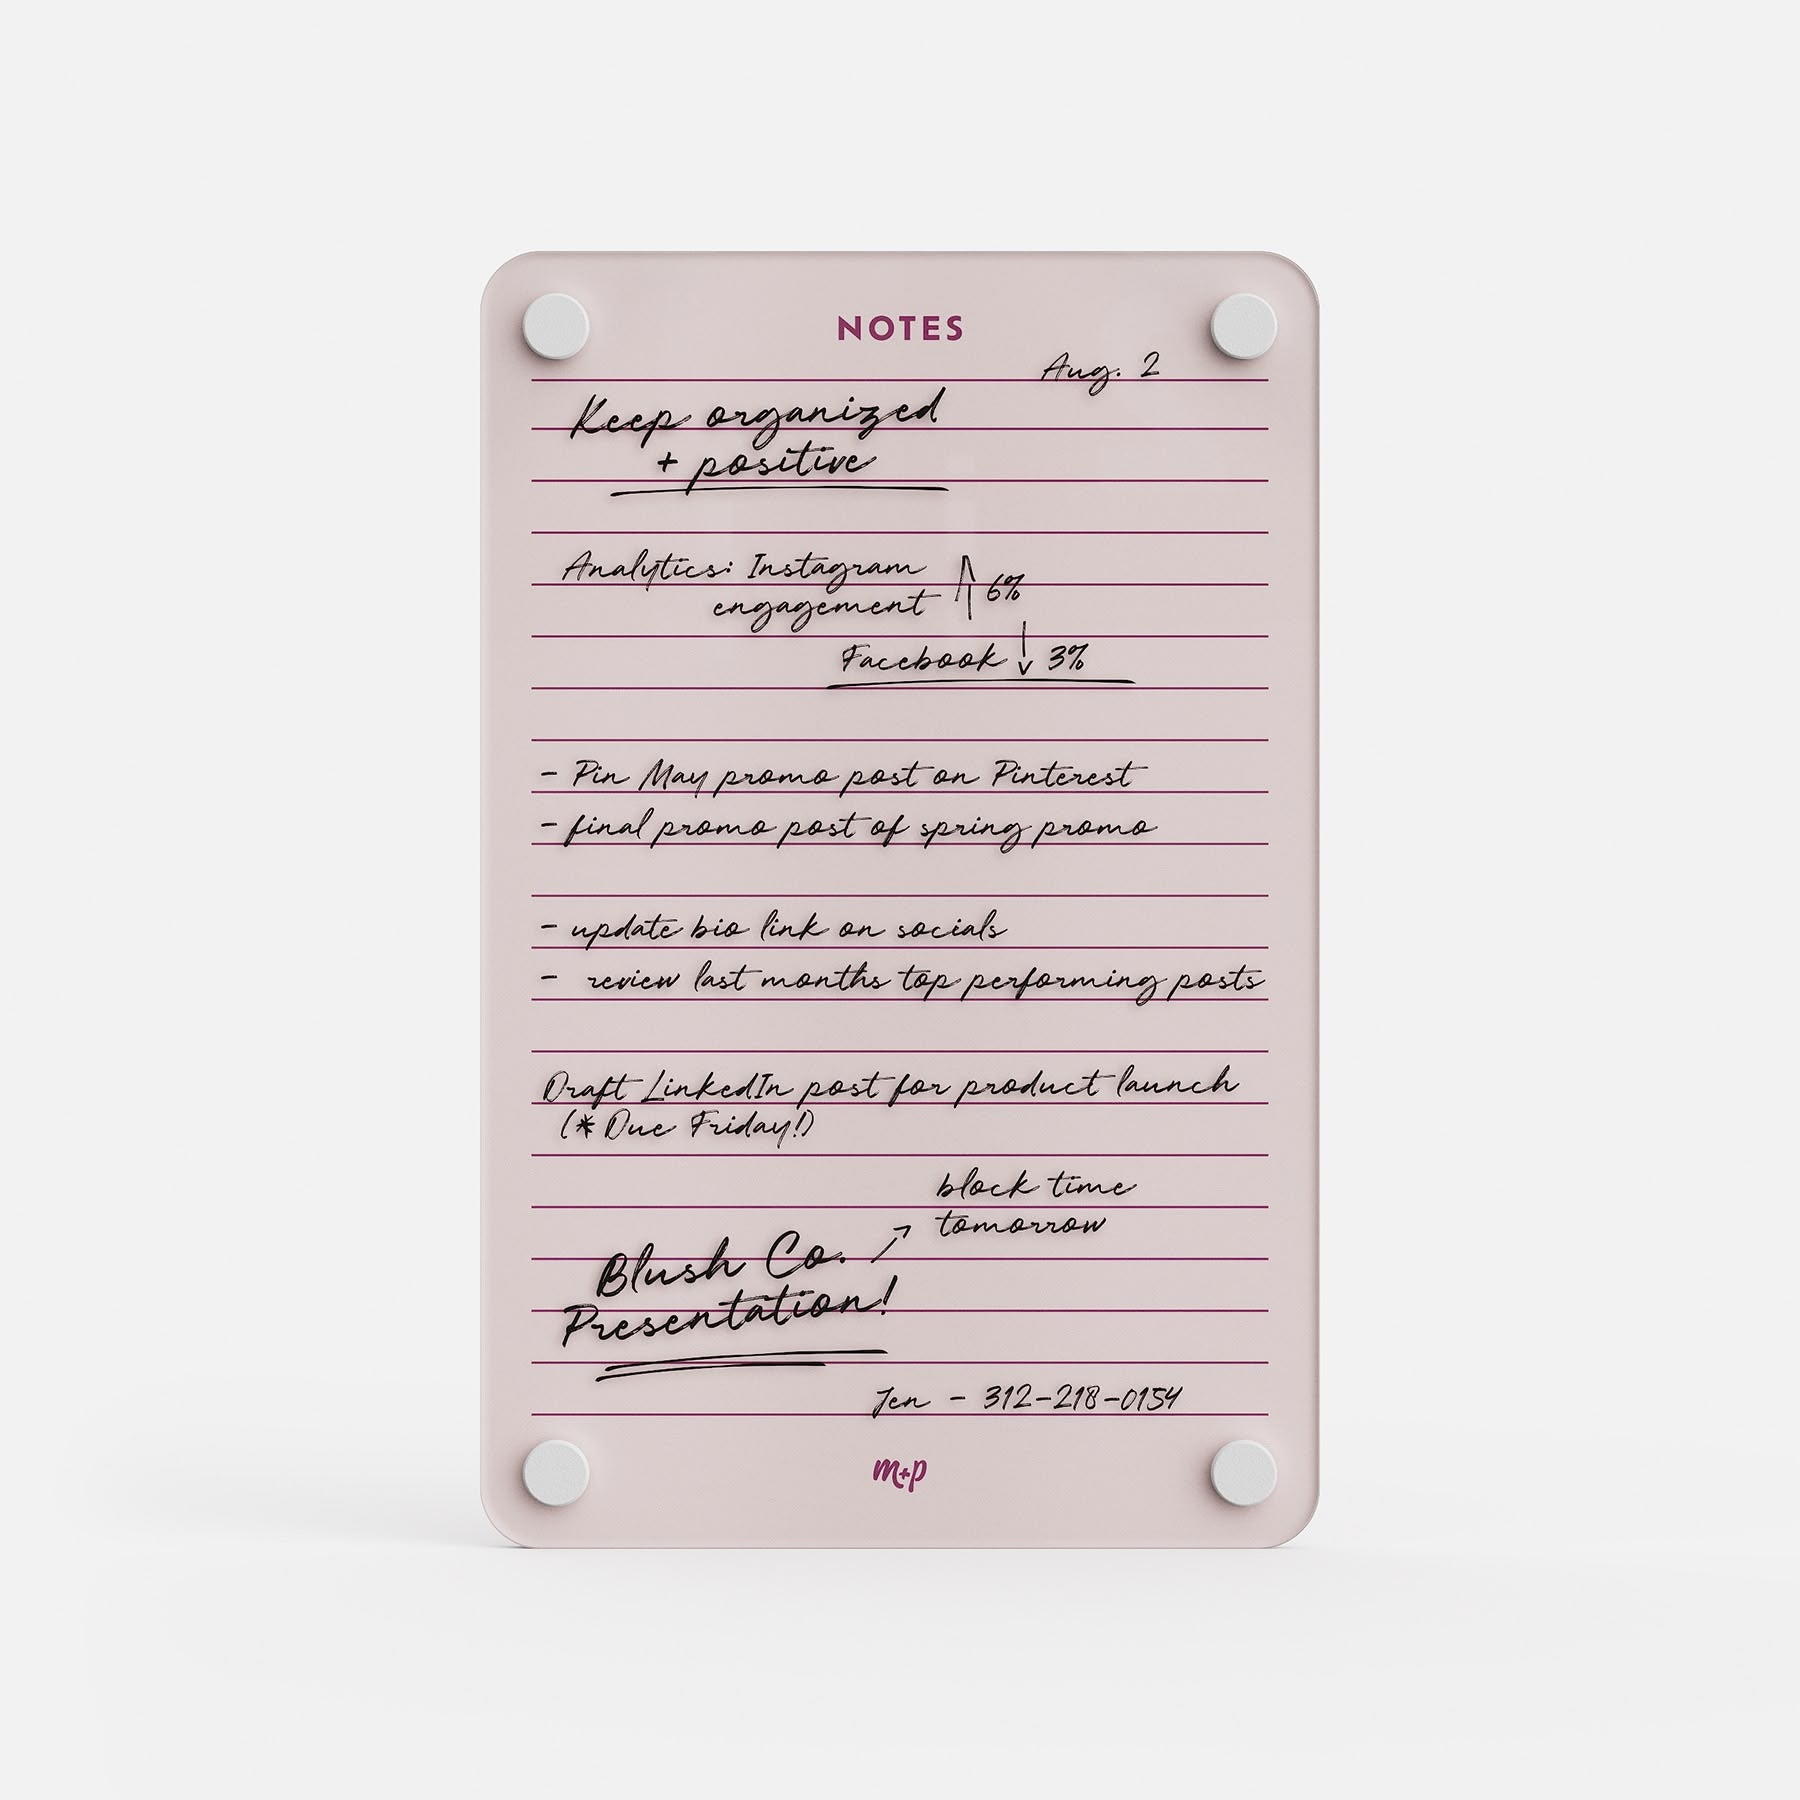 NOTES
Aug. 2
Keep organized
+ positive
Analytics: Instagram ↑ 6%
engagement
Facebook ↓ 3%
- Pin May promo post on Pinterest
- final promo post of spring promo
- update bio link on socials
- review last months top performing posts
Draft LinkedIn post for product launch
(* Due Friday!)
block time
tomorrow
Blush Co. ↗
Presentation!
Jen - 312-218-0154
m+p